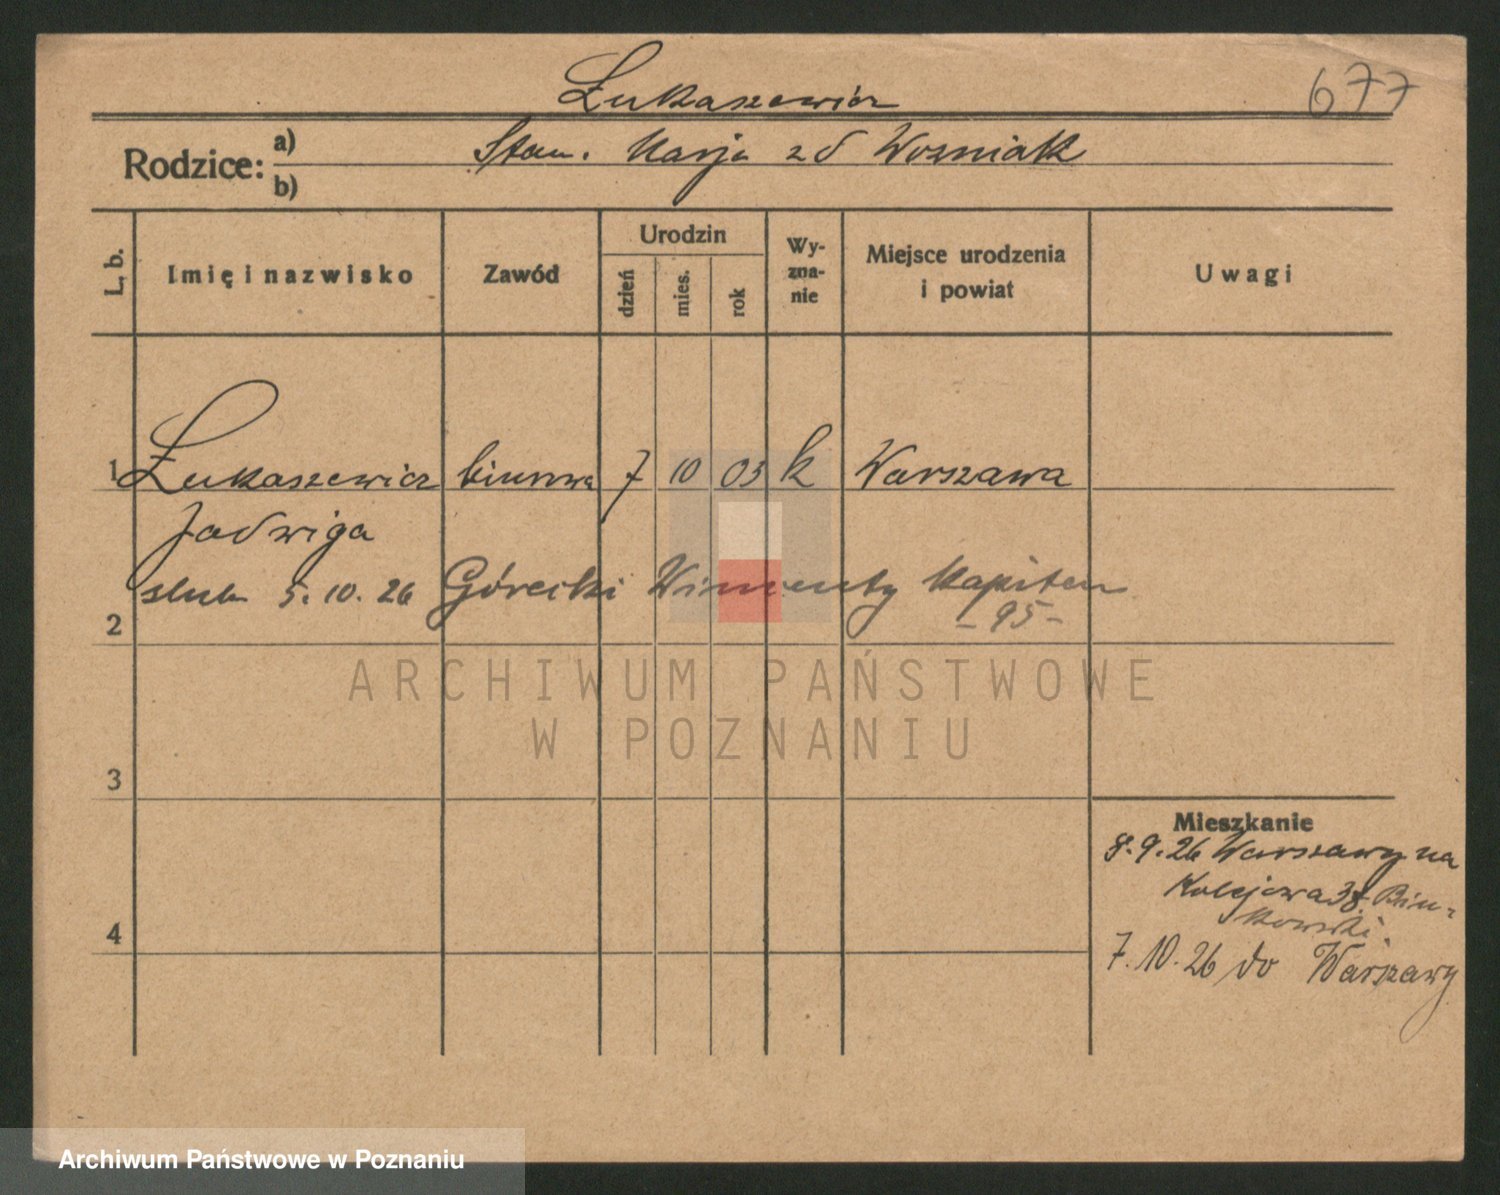 Łukaszewicz
677
Rodzice: a) Stan. Marja zd Wozniak
b)
L. b.
Imię i nazwisko
Zawód
Urodzin
dzień
mies.
rok
Wy-
zna-
nie
Miejsce urodzenia
i powiat
Uwagi
1 Łukaszewicz biurowa 7 10 03 k Warszawa
Jadwiga
ślub 5.10.26 Górecki Wincenty kapitan
-95-
2
ARCHIWUM PAŃSTWOWE
W POZNANIU
3
Mieszkanie
8.9.26 Warszawy na
Kolejowa 38. Bin-
kowski
4
7.10.26 do Warszawy
Archiwum Państwowe w Poznaniu